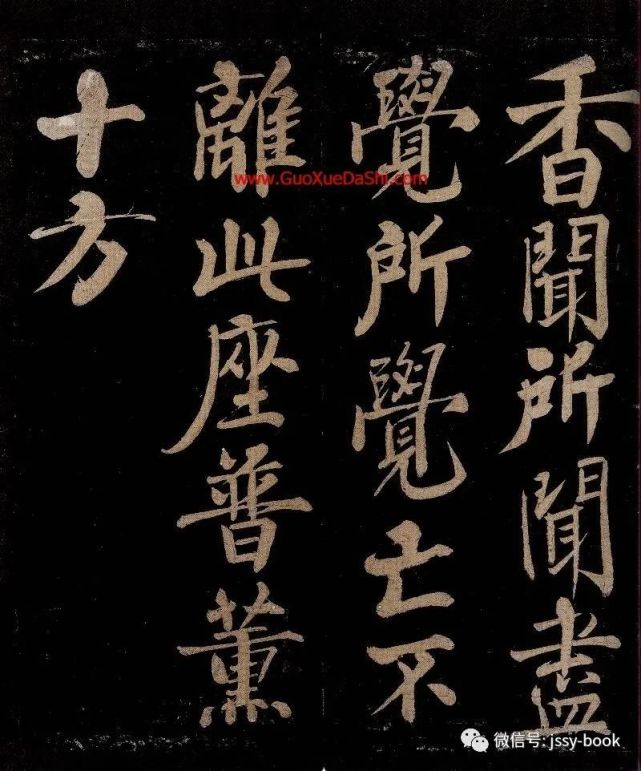 香聞所聞盡
覺所覺亡不
離此座普薰
十方
www.GuoXueDaShi.com
微信号: jssy-book